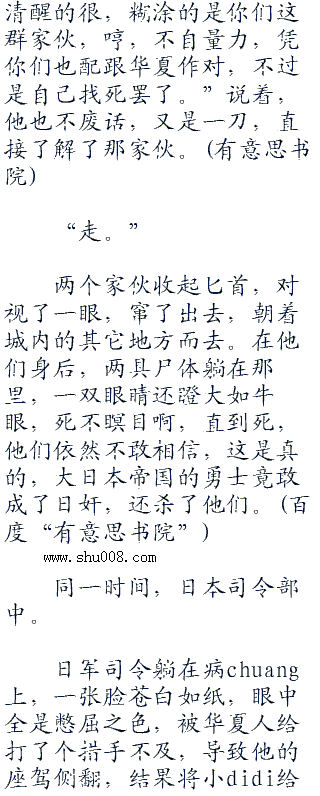 清醒的很，糊涂的是你们这
群家伙，哼，不自量力，凭
你们也配跟华夏作对，不过
是自己找死罢了。”说着，
他也不废话，又是一刀，直
接了解了那家伙。(有意思书
院)
“走。”
两个家伙收起匕首，对
视了一眼，窜了出去，朝着
城内的其它地方而去。在他
们身后，两具尸体躺在那
里，一双眼睛还瞪大如牛
眼，死不瞑目啊，直到死，
他们依然不敢相信，这是真
的，大日本帝国的勇士竟敢
成了日奸，还杀了他们。(百
度“有意思书院”)
www.shu008.com
同一时间，日本司令部
中。
日军司令躺在病chuang
上，一张脸苍白如纸，眼中
全是憋屈之色，被华夏人给
打了个措手不及，导致他的
座驾侧翻，结果将小didi给